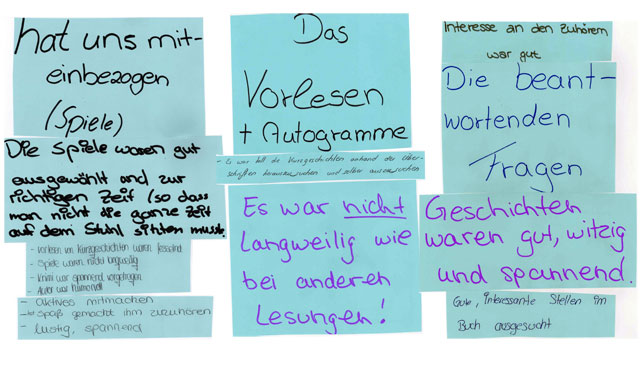 hat uns mit-
einbezogen
(Spiele)
Die Spiele waren gut
ausgewählt und zur
richtigen Zeit (so dass
man nicht die ganze Zeit
auf dem Stuhl sitzten musst.
- Vorlesen von Kurzgeschichten waren fesselnd
- Spiele waren nicht langweilig
- Krimi war spannend vorgetragen
- Autor war humorvoll
- aktives mitmachen
- spaß gemacht ihm zuzuhören
- lustig, spannend
Das
Vorlesen
+ Autogramme
- Es war toll die Kurzgeschichten anhand der Über-
schriften herauszusuchen und selber auszusuchen
Es war nicht
langweilig wie
bei anderen
Lesungen!
Interesse an den Zuhörern
war gut
Die beant-
wortenden
Fragen
Geschichten
waren gut, witzig
und spannend.
Gute, interessante Stellen im
Buch ausgesucht